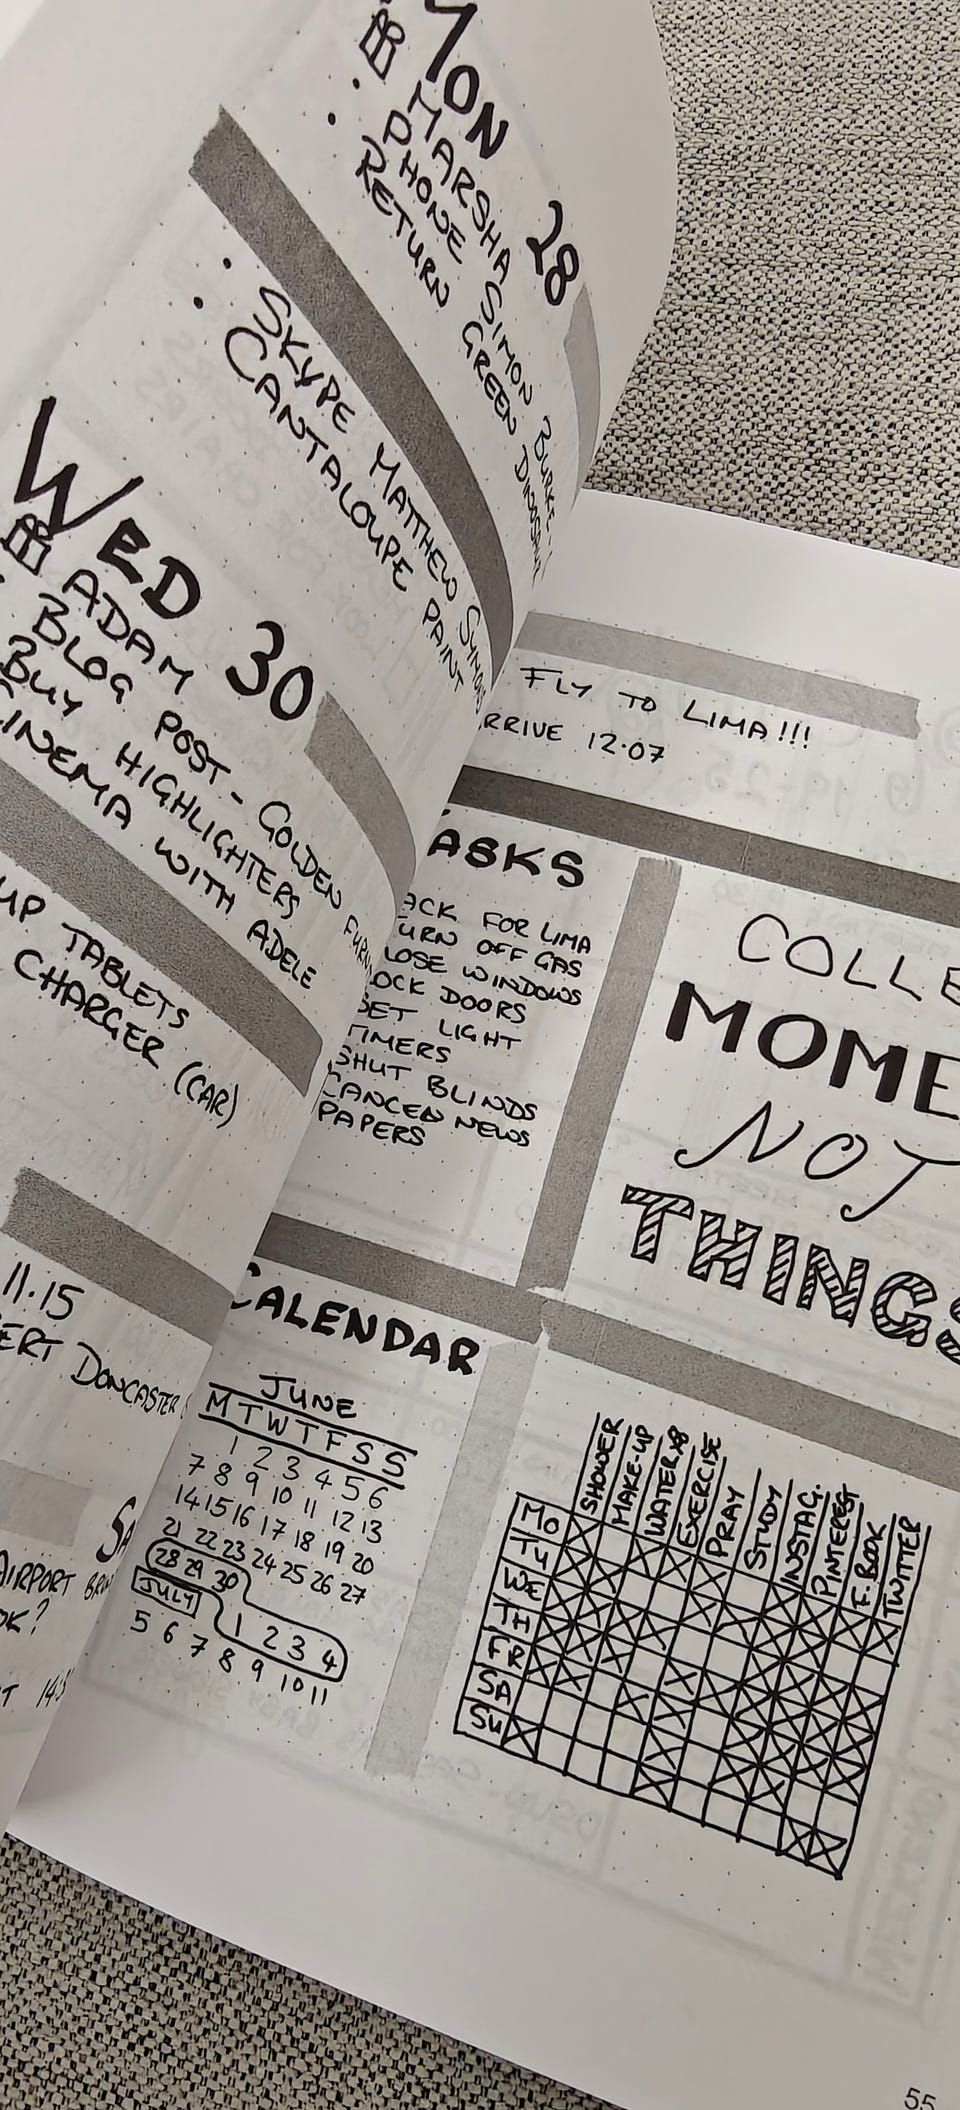 MON 28
MARSHA
• PHONE SIMON BURKE
• RETURN GREEN DINOSAUR
• SKYPE MATTHEW SYMONS
• CANTALOUPE PAINT
WED 30
ADAM
BLOG POST - GOLDEN
BUY HIGHLIGHTERS
CINEMA WITH ADELE
UP TABLETS
CHARGER (CAR)
11.15
DONCASTER
AIRPORT
OK?
FLY TO LIMA!!!
ARRIVE 12.07
TASKS
PACK FOR LIMA
TURN OFF GAS
CLOSE WINDOWS
LOCK DOORS
SET LIGHT
TIMERS
SHUT BLINDS
CANCEL NEWS
PAPERS
COLLE
MOME
NOT
THINGS
CALENDAR
JUNE
M T W T F S S
1 2 3 4 5 6
7 8 9 10 11 12 13
14 15 16 17 18 19 20
21 22 23 24 25 26 27
28 29 30
JULY 1 2 3 4
5 6 7 8 9 10 11
SHOWER MAKE-UP WATER x8 EXERCISE PRAY STUDY INSTAG. PINTEREST F. BOOK TWITTER
MO
TU
WE
TH
FR
SA
SU
55